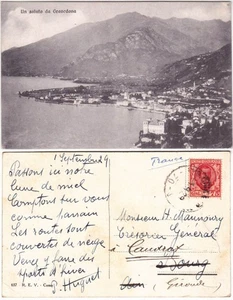 Un saluto da Gravedona
1 Septembre 19
Passons ici notre
lune de miel
Comptons sur vous
comme parrain
Les routes sont
couvertes de neige
Venez faire des
sports d'hiver
J. Huguet
France
Monsieur H. Maunoury
Trésorier Général
à Caudéran
Bourg
(Gironde)